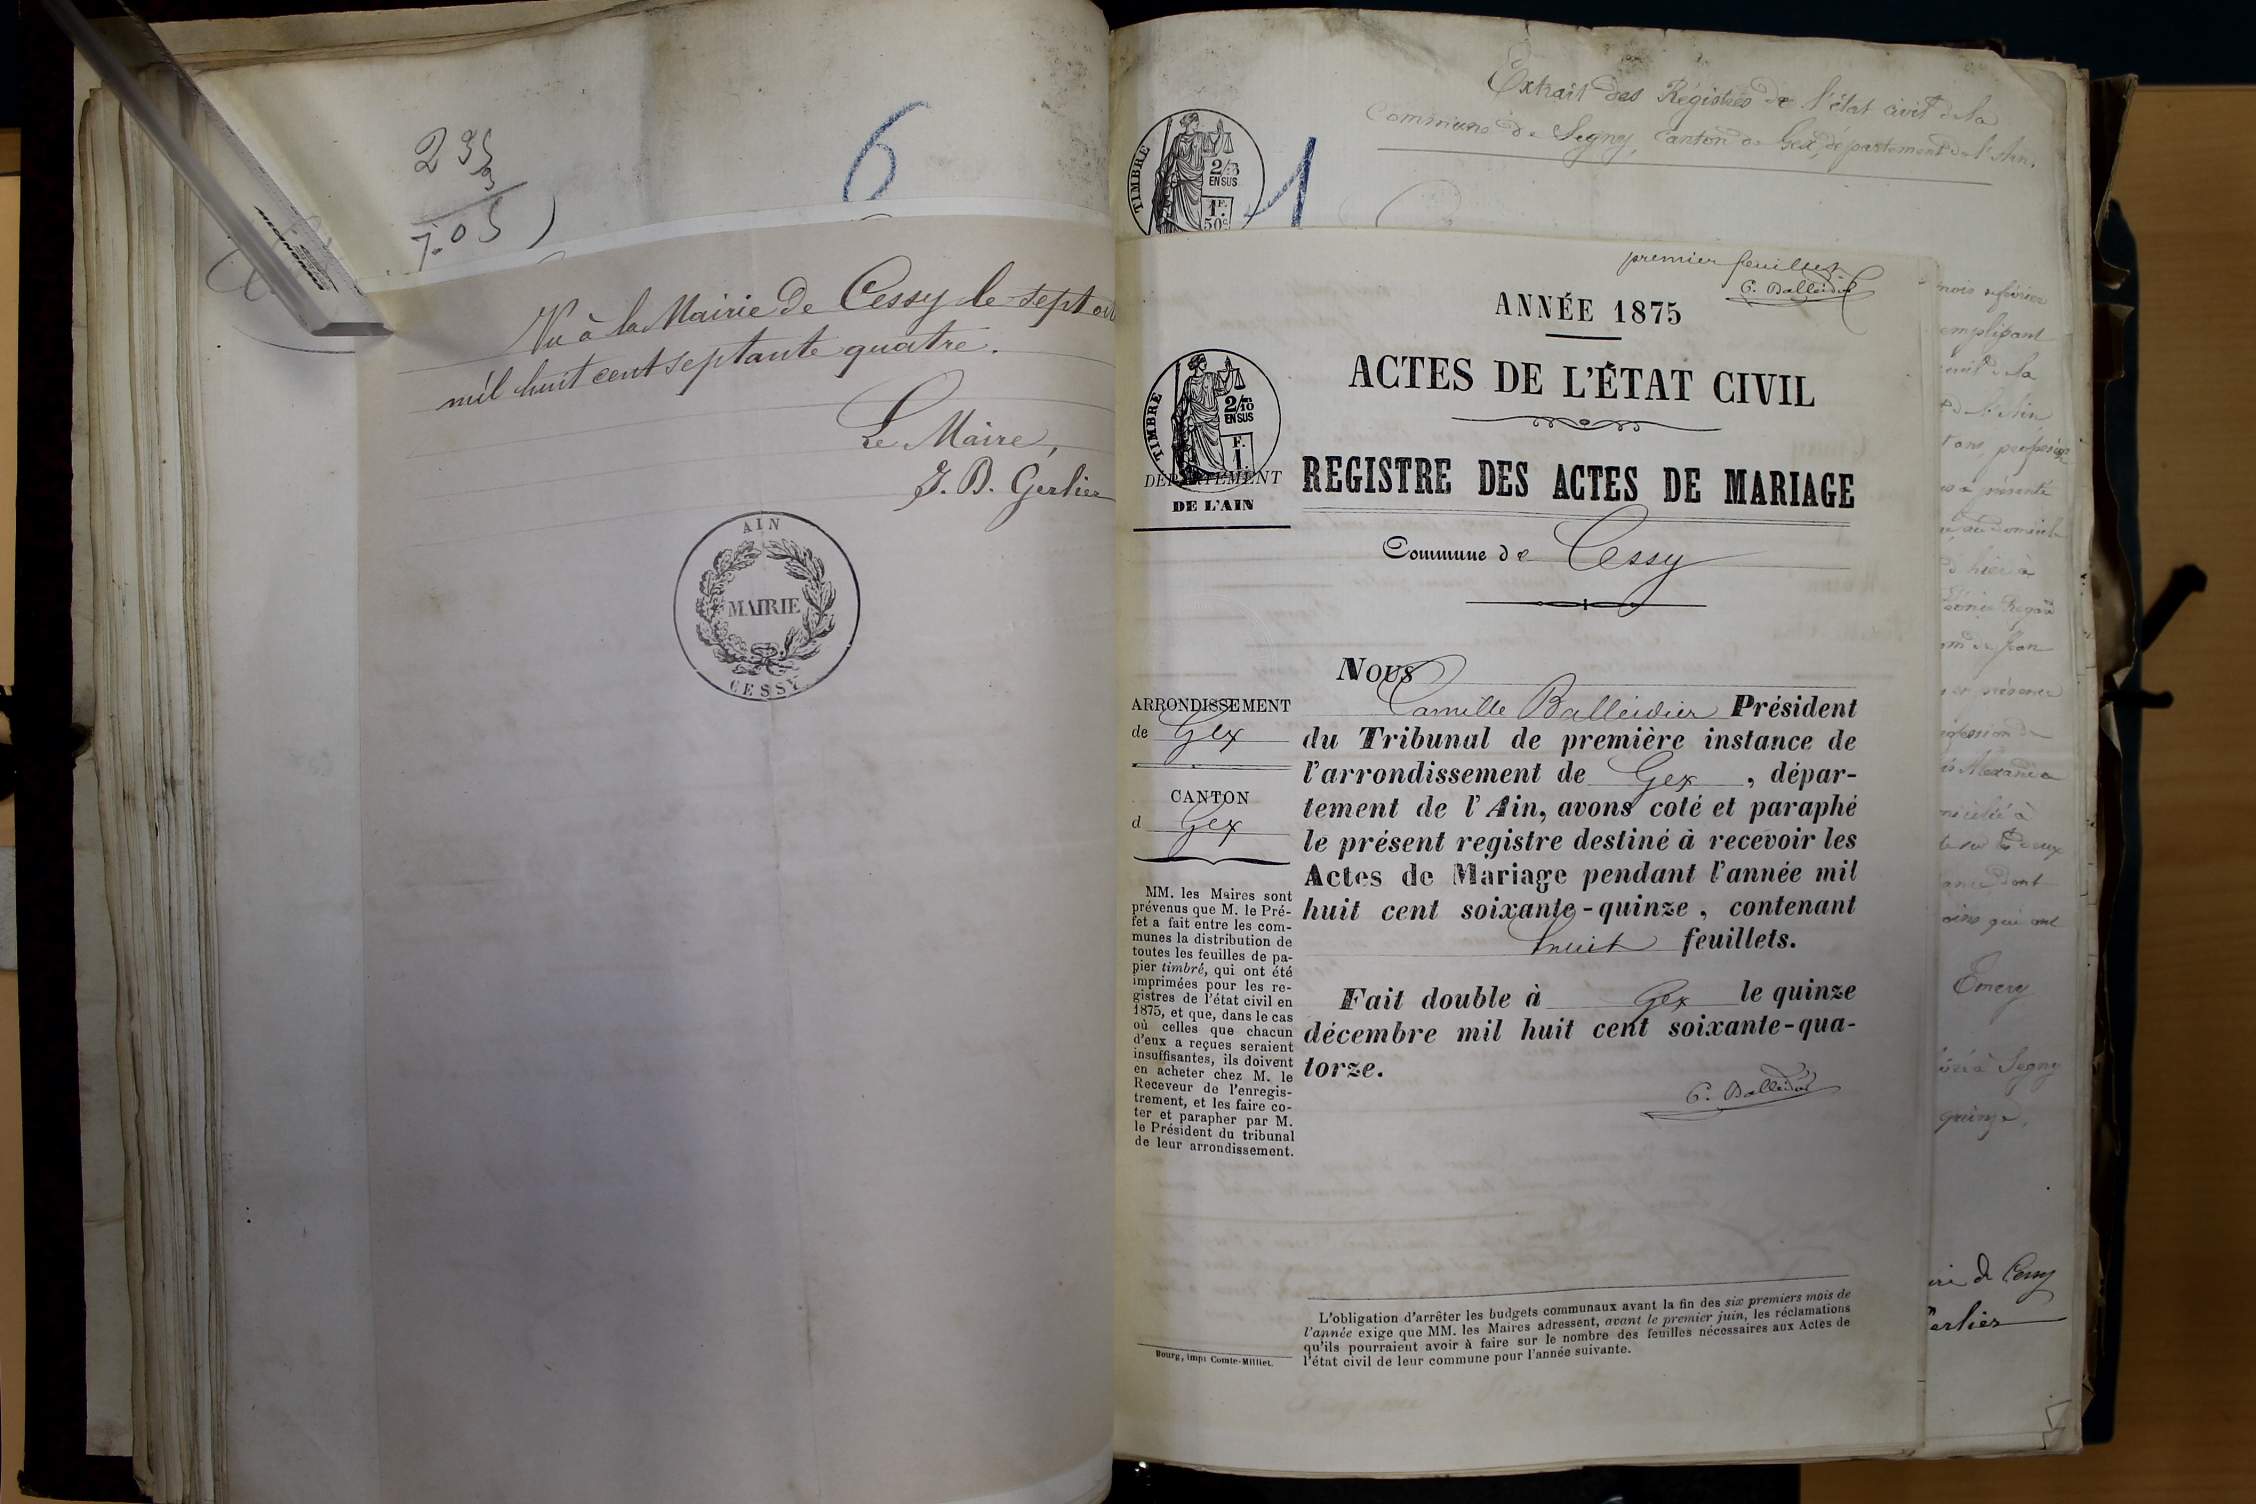 6
Vu à la Mairie de Cessy le sept
mil huit cent septante quatre.
Le Maire,
J. B. Gerlier
AIN
MAIRIE
CESSY
Extrait des Régistres de l'état civil de la
Commune de Segny, canton de Gex, département de l'Ain.
1
TIMBRE
2/10
EN SUS
1F.
50c
premier feuillet
C. Balleidier
ANNÉE 1875
ACTES DE L'ÉTAT CIVIL
TIMBRE
2/10
EN SUS
F.
1.
DÉPARTEMENT
DE L'AIN
REGISTRE DES ACTES DE MARIAGE
Commune de Cessy
ARRONDISSEMENT
de Gex
CANTON
d Gex
MM. les Maires sont
prévenus que M. le Pré-
fet a fait entre les com-
munes la distribution de
toutes les feuilles de pa-
pier timbré, qui ont été
imprimées pour les re-
gistres de l'état civil en
1875, et que, dans le cas
où celles que chacun
d'eux a reçues seraient
insuffisantes, ils doivent
en acheter chez M. le
Receveur de l'enregis-
trement, et les faire co-
ter et parapher par M.
le Président du tribunal
de leur arrondissement.
Bourg, imp. Comte-Milliet.
Nous
Camille Balleidier Président
du Tribunal de première instance de
l'arrondissement de Gex, dépar-
tement de l'Ain, avons coté et paraphé
le présent registre destiné à recevoir les
Actes de Mariage pendant l'année mil
huit cent soixante-quinze, contenant
huit feuillets.
Fait double à Gex le quinze
décembre mil huit cent soixante-qua-
torze.
C. Balleidier
L'obligation d'arrêter les budgets communaux avant la fin des six premiers mois de
l'année exige que MM. les Maires adressent, avant le premier juin, les réclamations
qu'ils pourraient avoir à faire sur le nombre des feuilles nécessaires aux Actes de
l'état civil de leur commune pour l'année suivante.
Emery
à Segny
quinze.
de Cessy
erlier